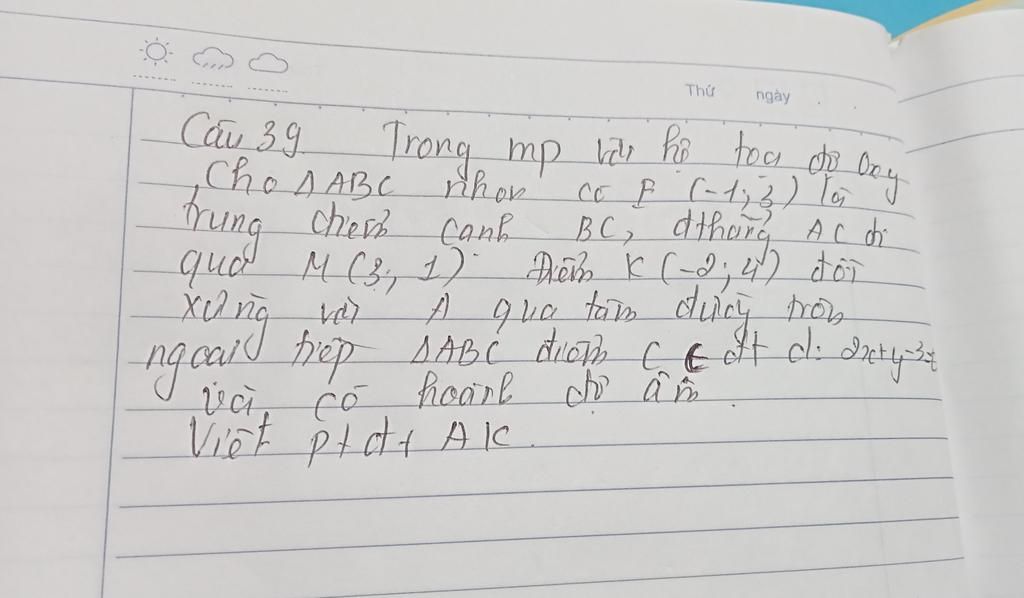 Thứ ngày
Câu 39 Trong mp với hệ toạ độ Oxy
, Cho ΔABC nhọn có E (-1; 3) là
trung điểm cạnh BC, đthẳng AC đi
qua M (3; 1) Điểm K (-2; 4) đối
xứng với A qua tâm đường tròn
ngoại tiếp ΔABC điểm C ∈ đt d: 2x+y-3=
và có hoành độ âm.
Viết pt đt AK.